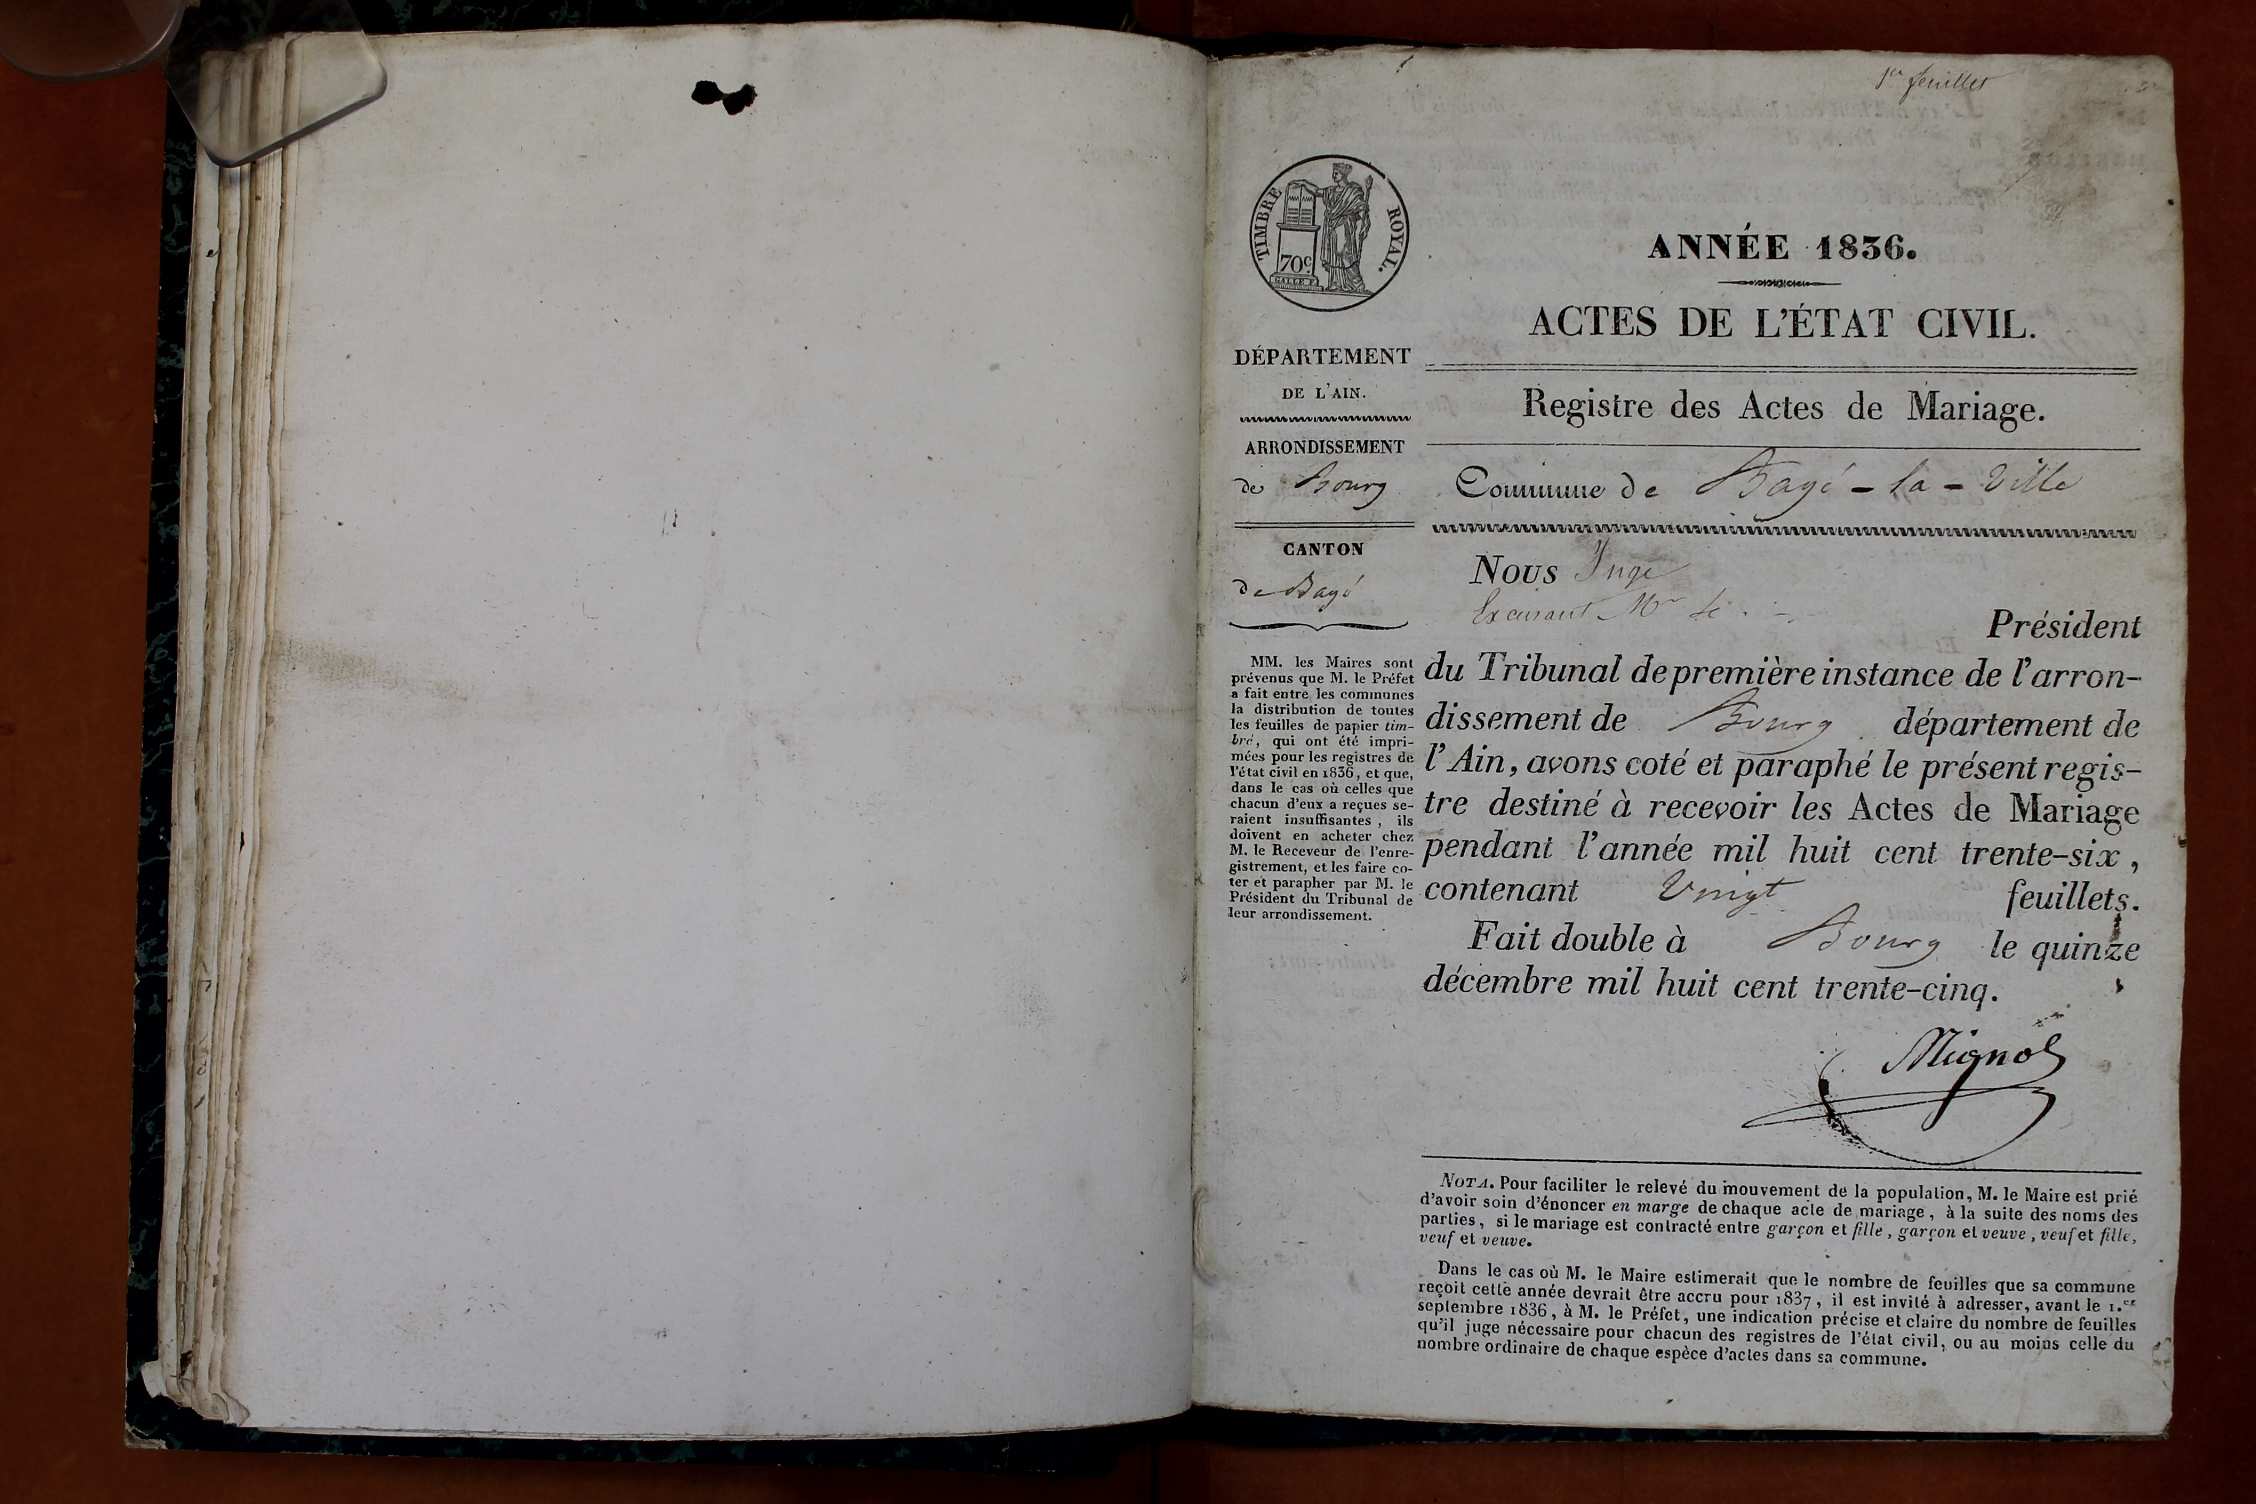 1er feuillet
TIMBRE ROYAL.
70c
ANNÉE 1836.
ACTES DE L'ÉTAT CIVIL.
Registre des Actes de Mariage.
Commune de Bagé-la-Ville
DÉPARTEMENT
DE L'AIN.
ARRONDISSEMENT
de Bourg
CANTON
de Bagé
MM. les Maires sont
prévenus que M. le Préfet
a fait entre les communes
la distribution de toutes
les feuilles de papier tim-
bré, qui ont été impri-
mées pour les registres de
l'état civil en 1836, et que,
dans le cas où celles que
chacun d'eux a reçues se-
raient insuffisantes, ils
doivent en acheter chez
M. le Receveur de l'enre-
gistrement, et les faire co-
ter et parapher par M. le
Président du Tribunal de
leur arrondissement.
Nous Juge
Mr le
Président
du Tribunal de première instance de l'arron-
dissement de Bourg département de
l'Ain, avons coté et paraphé le présent regis-
tre destiné à recevoir les Actes de Mariage
pendant l'année mil huit cent trente-six,
contenant Vingt feuillets.
Fait double à Bourg le quinze
décembre mil huit cent trente-cinq.
NOTA. Pour faciliter le relevé du mouvement de la population, M. le Maire est prié
d'avoir soin d'énoncer en marge de chaque acte de mariage, à la suite des noms des
parties, si le mariage est contracté entre garçon et fille, garçon et veuve, veuf et fille,
veuf et veuve.
Dans le cas où M. le Maire estimerait que le nombre de feuilles que sa commune
reçoit cette année devrait être accru pour 1837, il est invité à adresser, avant le 1.er
septembre 1836, à M. le Préfet, une indication précise et claire du nombre de feuilles
qu'il juge nécessaire pour chacun des registres de l'état civil, ou au moins celle du
nombre ordinaire de chaque espèce d'actes dans sa commune.